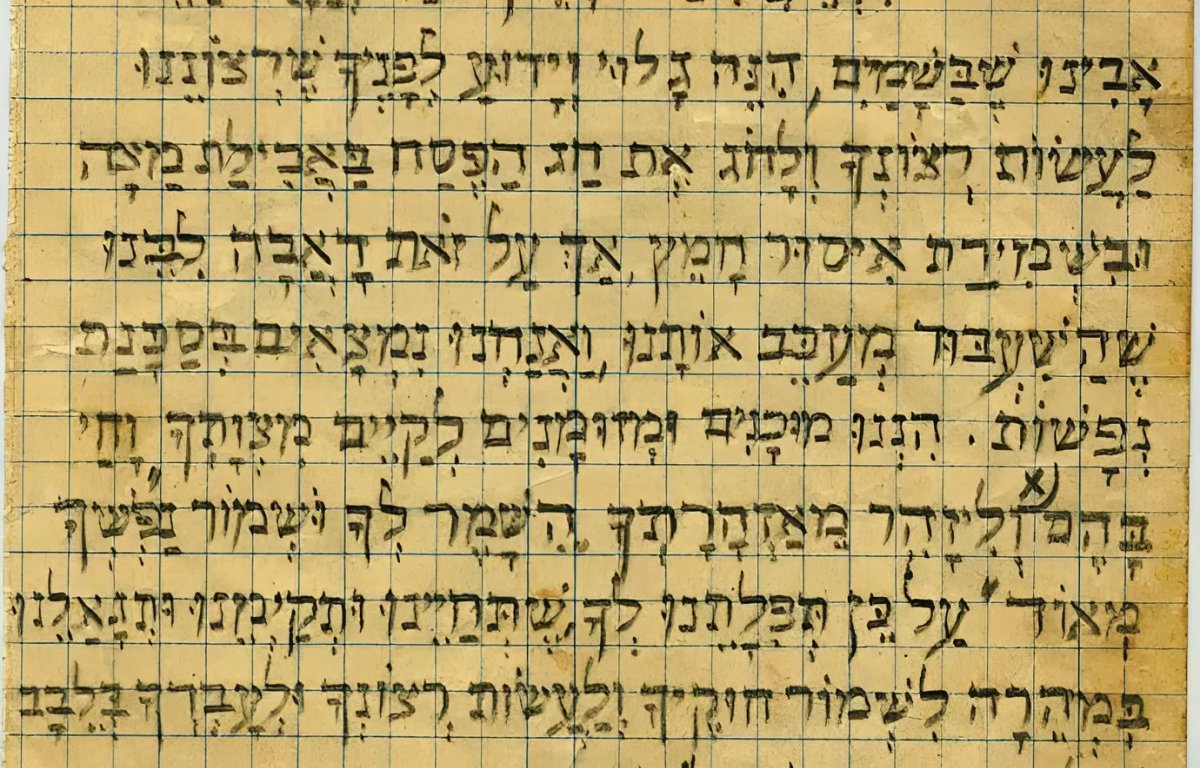 אָבִינוּ שֶׁבַּשָּׁמַיִם, הִנֵּה גָלוּי וְיָדוּעַ לְפָנֶיךָ שֶׁרְצוֹנֵנוּ
לַעֲשׂוֹת רְצוֹנְךָ וְלָחֹג אֶת חַג הַפֶּסַח בַּאֲכִילַת מַצָּה
וּבִשְׁמִירַת אִיסוּר חָמֵץ, אַךְ עַל זֹאת דָּאֲבָה לִבֵּנוּ
שֶׁהַשִּׁעְבּוּד מְעַכֵּב אוֹתָנוּ, וַאֲנַחְנוּ נִמְצָאִים בְּסַכָּנַת
נְפָשׁוֹת. הִנְנוּ מוּכָנִים וּמְזוּמָּנִים לְקַיֵּים מִצְוֹתֶךָ וָחַי
בָּהֶם x) וְלִיזָּהֵר מֵאַזְהָרָתְךָ הִשָּׁמֶר לְךָ וּשְׁמוֹר נַפְשְׁךָ
מְאוֹד" עַל כֵּן תְּפִלָּתֵנוּ לְךָ שֶׁתְּחַיֵּינוּ וּתְקַיְּמֵנוּ וְתִגְאָלֵנוּ
בִּמְהֵרָה לִשְׁמוֹר חוּקֶיךָ וְלַעֲשׂוֹת רְצוֹנְךָ וּלְעָבְדְךָ בְּלֵבָב